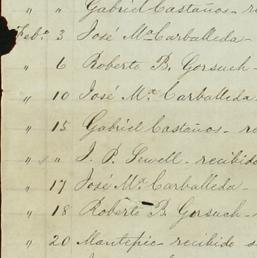 " " Gabriel Castaños - r
Feb.º 3 José M.ª Carballeda -
" 6 Roberto B. Gorsuch -
" 10 José M.ª Carballeda
" 15 Gabriel Castaños - r
" " J. P. Sewell - recibido
" 17 José M.ª Carballeda -
" 18 Roberto B. Gorsuch -
" 20 Mantepio - recibido s